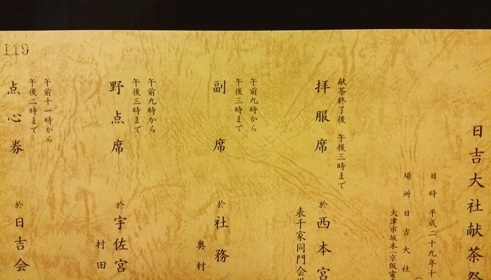 119
日吉大社献茶祭
日時 平成二十九年十
場所 日吉大社
大津市坂本
献茶終了後 午後三時まで
拝服席 於 西本宮
表千家同門会
午前九時から
午後三時まで
副席 於 社務
奥村
午前九時から
午後三時まで
野点席 於 宇佐宮
村田
午前十一時から
午後二時まで
点心券 於 日吉会